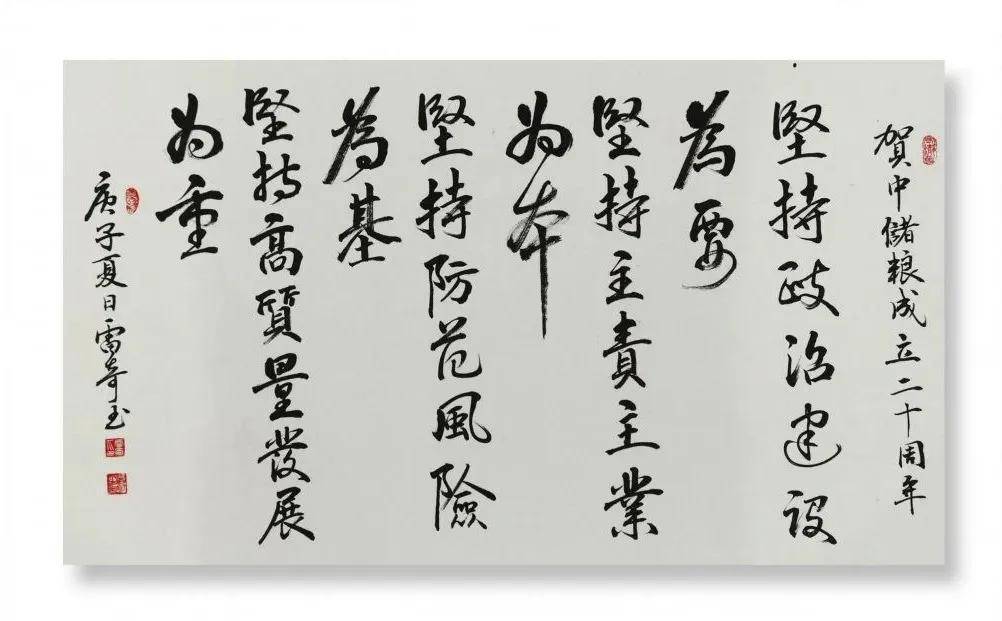 賀中儲粮成立二十周年
堅持政治建设
為要
堅持主責主業
为本
堅持防范風險
為基
堅持高質量發展
为重
庚子夏日雷奇玉